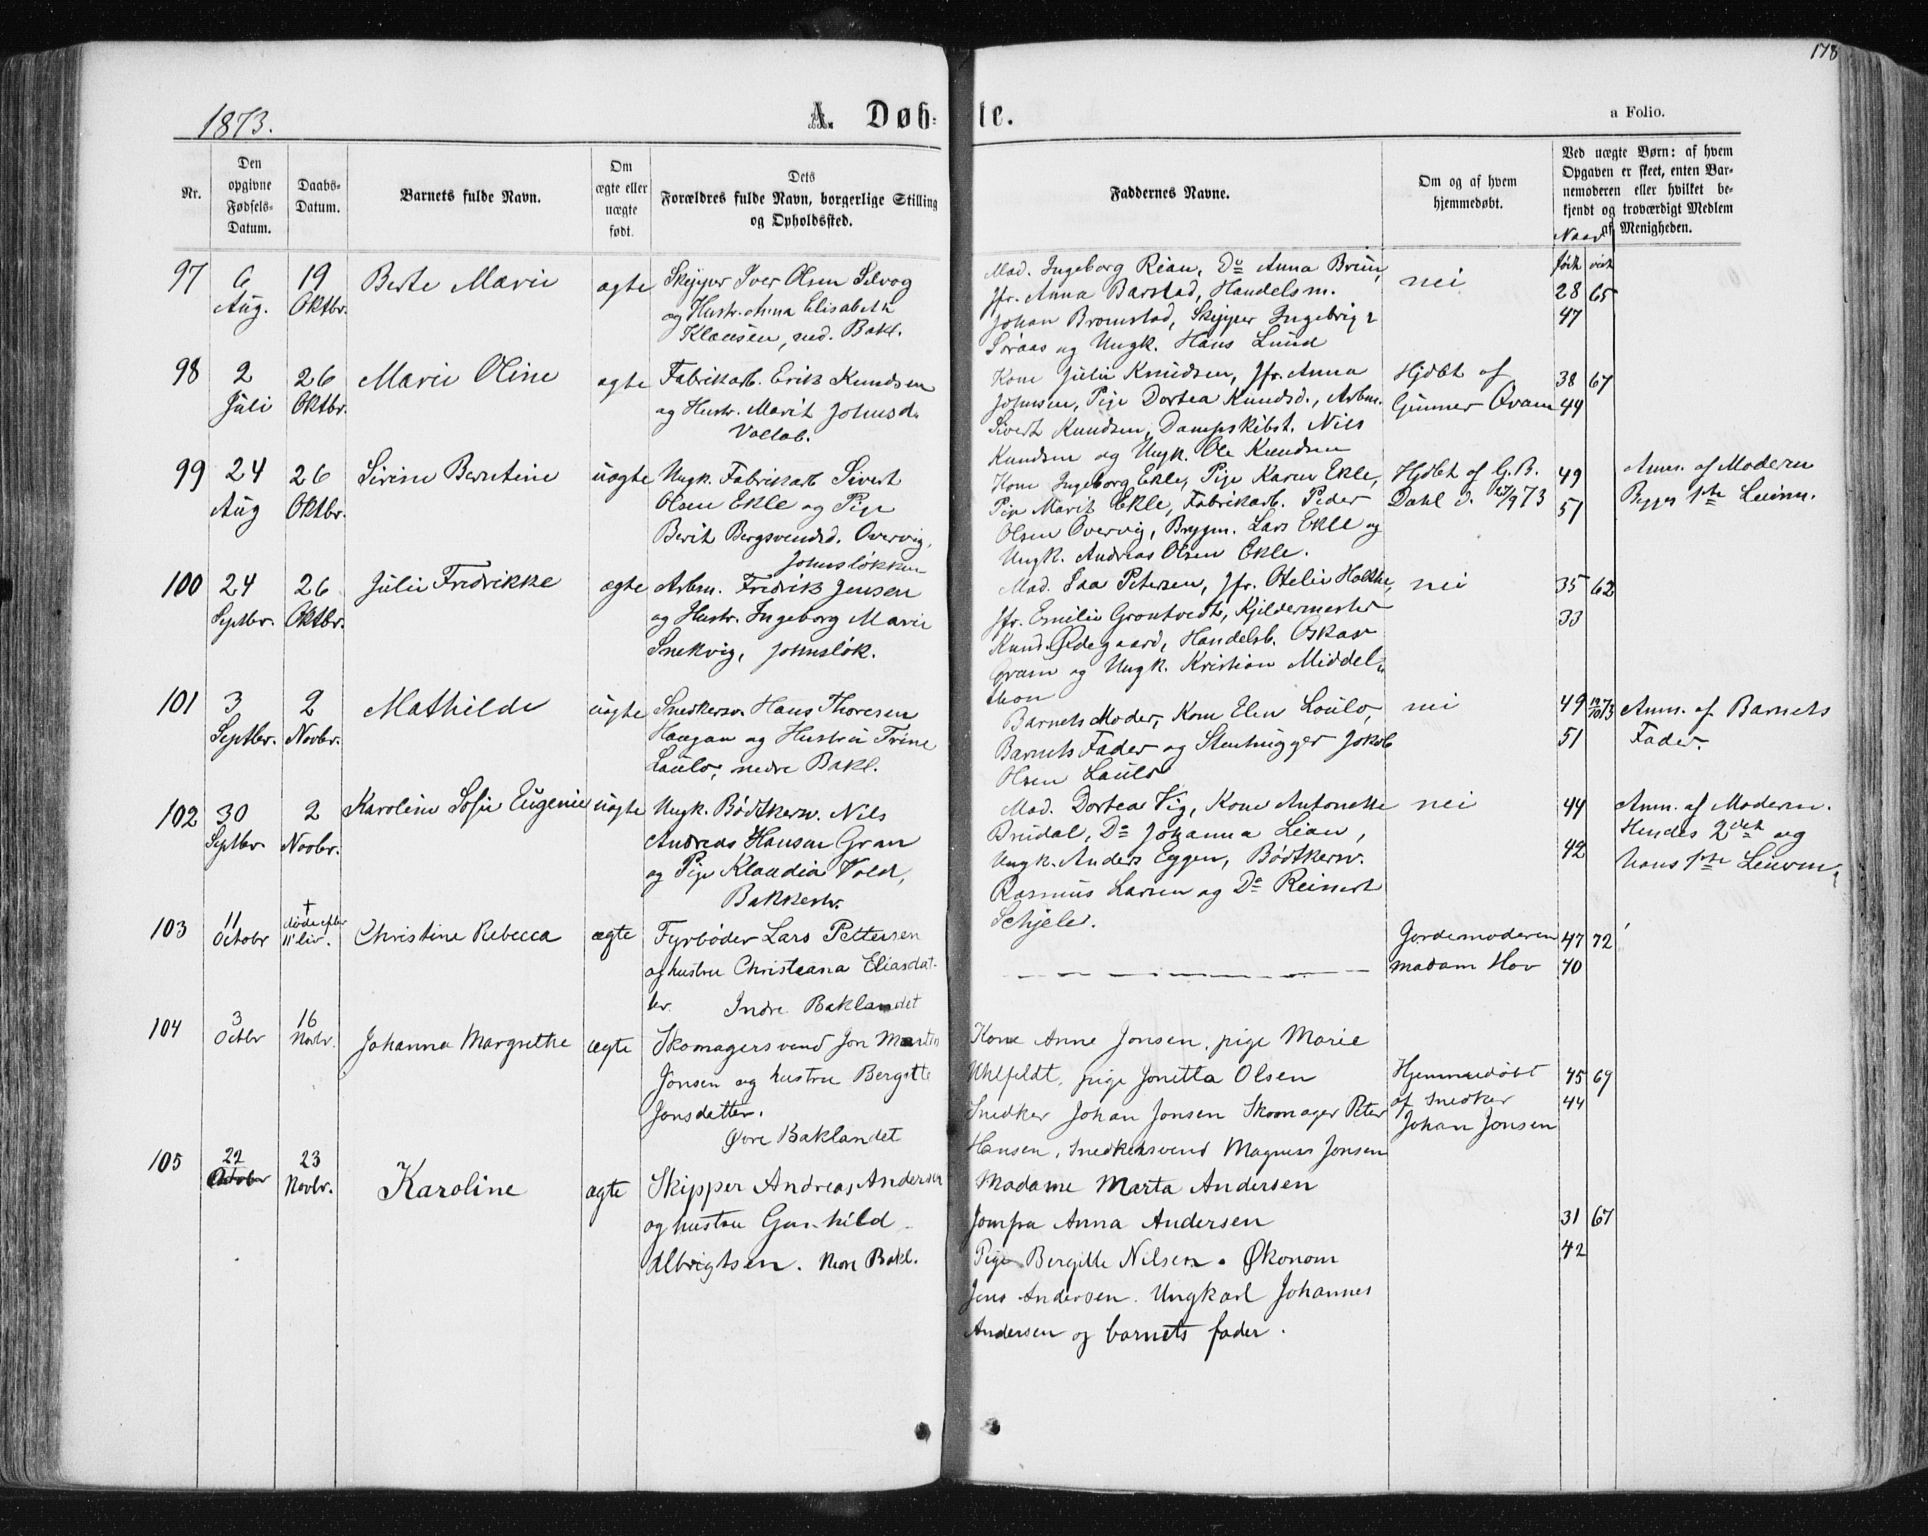 178
1873.
A. Døbte.
a Folio.
Nr.
Den opgivne Fødsels-Datum.
Daabs-Datum.
Barnets fulde Navn.
Om ægte eller uægte født.
Dets Forældres fulde Navn, borgerlige Stilling og Opholdssted.
Faddernes Navne.
Om og af hvem hjemmedøbt.
Ved uægte Børn: af hvem Opgaven er skeet, enten Barnemoderen eller hvilket bekjendt og troværdigt Medlem af Menigheden.
Naar
født viet
97
6 Aug.
19 Oktbr.
Berte Marie
ægte
Skipper Iver Olsen Selvog
og Hustr. Anna Elisabeth
Klausen, ned. Bakl.
Mad. Ingeborg Rian, Do Anna Bruun,
Jfr. Anna Barstad, Handelsm.
Johan Bromstad, Skipper Ingebrigt
Soraas og Ungk. Hans Lund
nei
28 65
47
98
2 Juli
26 Oktbr.
Marie Oline
ægte
Fabrikarb. Erik Knudsen
og Hustr. Marit Johnsd.
Vollab.
Kone Julie Knudsen, Jfr. Anna
Johnsen, Pige Dortea Knudsd., Arbm.
Sivert Knudsen, Dampskibst. Nils
Knudsen og Ungk. Ole Knudsen
Hjdbt af
Gunner Qvam
38 67
44
99
24 Aug
26 Oktbr.
Sirine Berntine
uægte
Ungk. Fabrikarb Sivert
Olsen Ekle og Pige
Berit Bergsvendsd. Overvig,
Johnsløkken
Kone Ingeborg Ekle, Pige Karen Ekle,
Pige Marit Ekle, Fabrikarb. Peder
Olsen Overvig, Brygm. Lars Ekle og
Ungk. Andreas Olsen Ekle.
Hjdbt af G. B.
Dahl d. 27/9 73
49
51
Anm. af Modern
Begges 1ste Leierm.
100
24 Septbr.
26 Oktbr.
Julie Fredrikke
ægte
Arbm. Fredrik Jensen
og Hustr. Ingeborg Marie
Snekvig, Johnsløk.
Mad. Saa Petersen, Jfr. Otelie Holthe,
Jfr. Emilie Grontvedt, Kjeldermester
Knud Ødegaard, Handelsb. Oskar
Gram og Ungk. Kristian Middel-
thon
nei
35 62
33
101
3 Septbr.
2 Novbr.
Mathilde
uægte
Snedkersv. Hans Thoresen
Haugan og Hustru Trine
Laulo, nedre Bakl.
Barnets Moder, Kone Elen Laulo,
Barnets Fader og Stenhugger Jakob
Olsen Laulo
nei
49
51
Anm. af Barnets
Fader.
102
30 Septbr.
2 Novbr.
Karoline Sofie Eugenie
uægte
Ungk. Bødtkersv. Nils
Andreas Hansen Gran
og Pige Klaudia Vold,
Bakkestr.
Mad. Dortea Vig, Kone Antonette
Brudal, Do Johanna Lian,
Ungk. Anders Eggen, Bødtkersv.
Rasmus Larsen og Do Reinert
Schjele.
nei
44
42
Anm. af Modern.
Hendes 2det og
hans 1ste Leierm.
103
11 Octobr
† døde efter 11' liv.
Christine Rebecca
ægte
Fyrbøder Lars Pettersen
og hustru Christiana Eliasdat-
ter. Indre Baklandet
Gordemoderen
madam Hov
47 72
40
104
3 Octbr
16 Novbr.
Johanna Margrethe
ægte
Skomagersvend Jon Martin
Jonsen og hustru Bergitte
Jonsdatter.
Øvre Baklandet
Kone Anne Jonsen, pige Marie
Uhlfeldt, pige Jonetta Olsen
Snedker Johan Jonsen Skomager Peter
Hansen, Snedkersvend Magnus Jonsen
Hjemmedøbt
af Snedker
Johan Jonsen
45 69
44
105
22 Octobr
23 Novbr.
Karoline
ægte
Skipper Andreas Andersen
og hustru Gunhild
Albrigtsen. Nere Bakl.
Madame Marta Andersen
Jomfru Anna Andersen
Pige Bergitte Nilsen. Økonom
Jens Andersen. Ungkarl Johannes
Andersen og barnets fader.
31 67
42